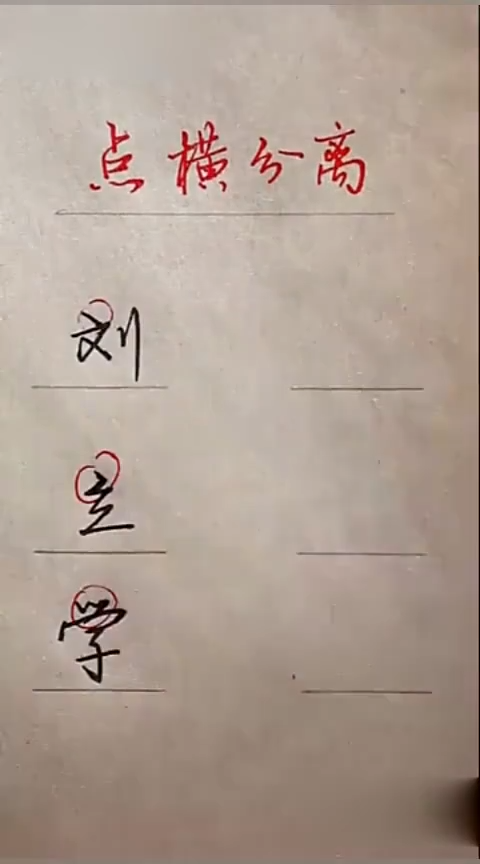 点横分离
刘
立
学